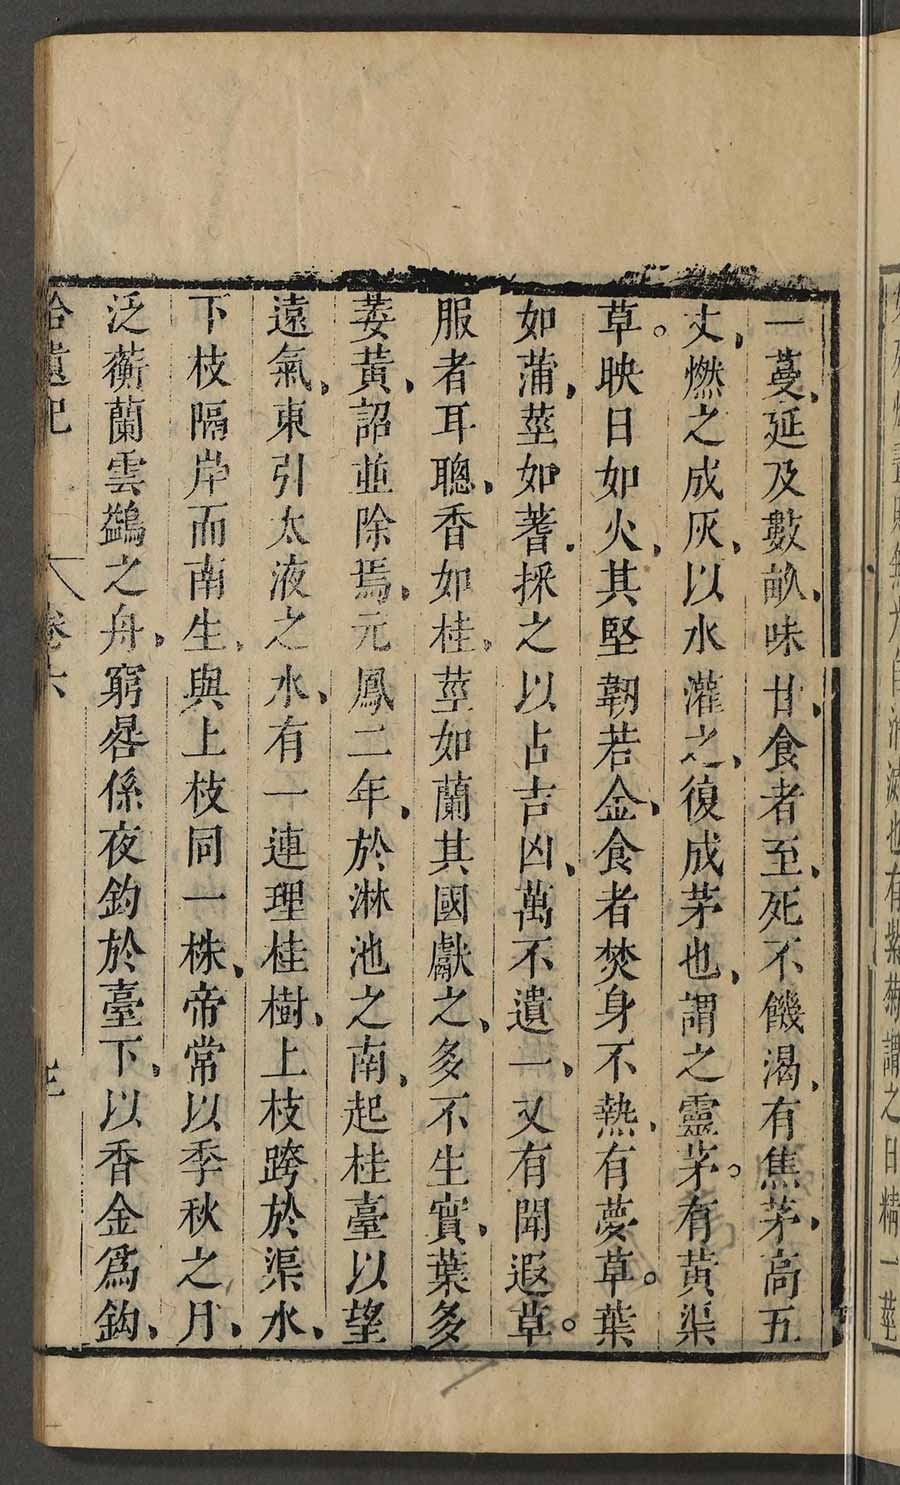 一蔓、延及數畝、味甘、食者至、死不饑渴、有焦茅、高五
丈、燃之成灰、以水灌之、復成茅也、謂之靈茅。有黃渠
草。映日如火、其堅韌若金、食者焚身不熱、有夢草。葉
如蒲、莖如蓍、採之以占吉凶、萬不遺一、又有聞遐草。
服者耳聰、香如桂、莖如蘭其國獻之、多不生實、葉多
萎黃、詔並除焉、元鳳二年、於淋池之南、起桂臺以望
遠氣、東引太液之水、有一連理桂樹、上枝跨於渠水、
下枝隔岸而南生、與上枝同一株、帝常以季秋之月、
泛蘅蘭雲鷁之舟、窮晷係夜釣於臺下、以香金爲鈎、
拾遺記 卷六
也有紫菊謂之日精一莖